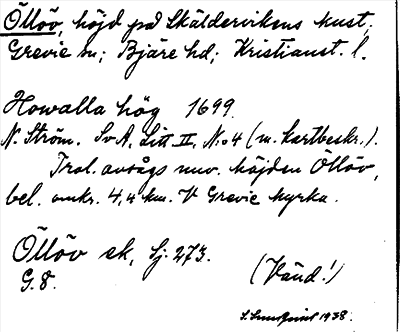 Öllöv, höjd på Skäldervikens kust,
Grevie sn; Bjäre hd; Kristianst. l.
Howalla hög 1699.
N. Ström. Sv. A. Litt. II, N:o 4 (m. kartbeskr.).
Trol. avsågs nuv. höjden Öllöv,
bel. omkr. 4,4 km. V Grevie kyrka.
Öllöv ek, Sj: 273.
G. 8.
(Vänd!)
1938.